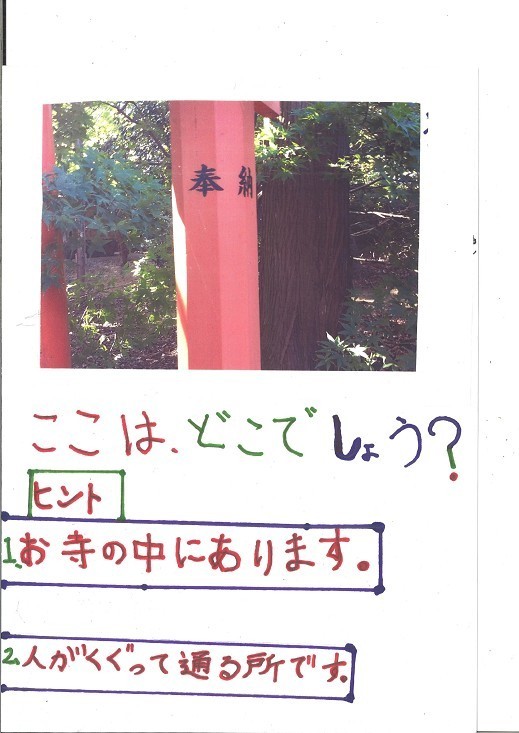 奉納
ここは、どこでしょう?
ヒント
1.お寺の中にあります。
2.人がくぐって通る所です。